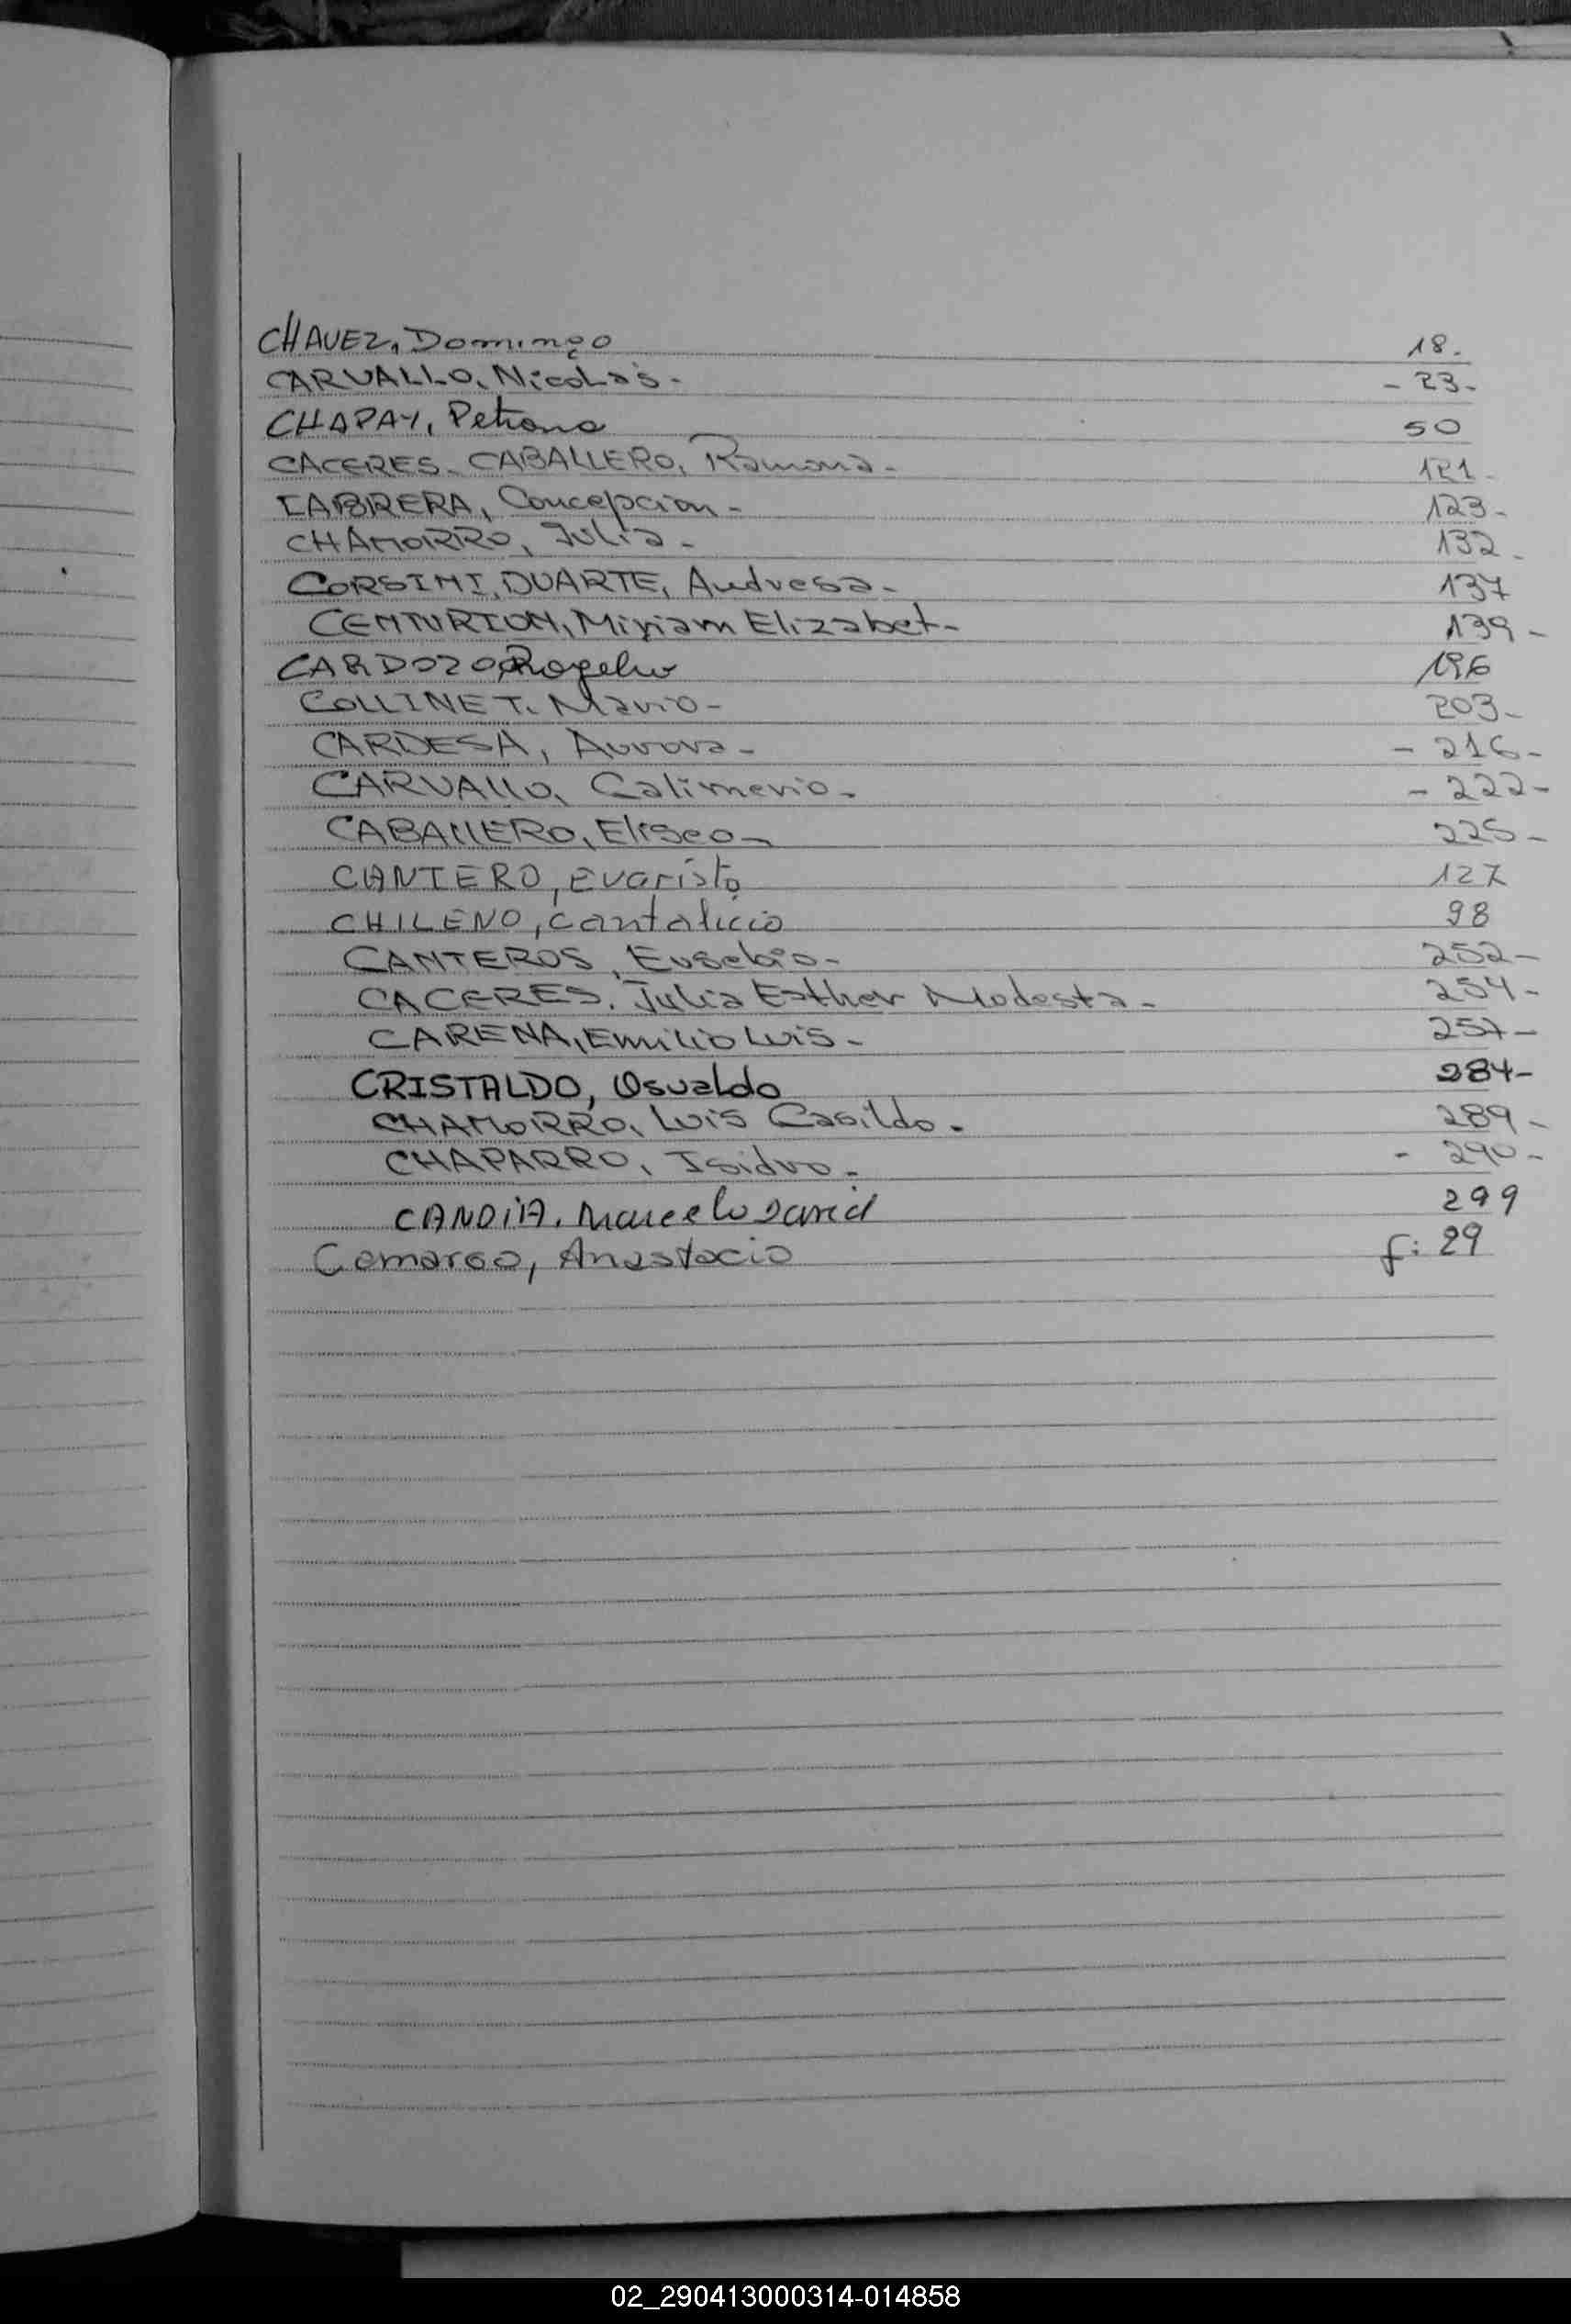 CHAVEZ, Domingo 18.
CARVALLO, Nicolás. - 23.
CHAPAY, Petrona 50
CACERES - CABALLERO, Ramona. 121.
CABRERA, Concepcion. 123.
CHAMORRO, Julia. 132.
CORSINI, DUARTE, Andresa. 137
CENTURION, Miriam Elizabet. 139-
CARDOZO, Rogelio 196
COLLINET, Mario - 203-
CARDESA, Aurora. - 216-
CARVALLO, Calimerio. - 222-
CABALLERO, Eliseo - 225-
CANTERO, Evaristo 127
CHILENO, cantalicio 98
CANTEROS, Eusebio - 252-
CACERES, Julia Esther Modesta. 254-
CARENA, Emilio Luis. 257-
CRISTALDO, Osvaldo 284-
CHAMORRO, Luis Casildo. 289-
CHAPARRO, Isidro. - 290-
CANDIA, Marcelo Daniel 299
Camargo, Anastacio f: 29
02_290413000314-014858